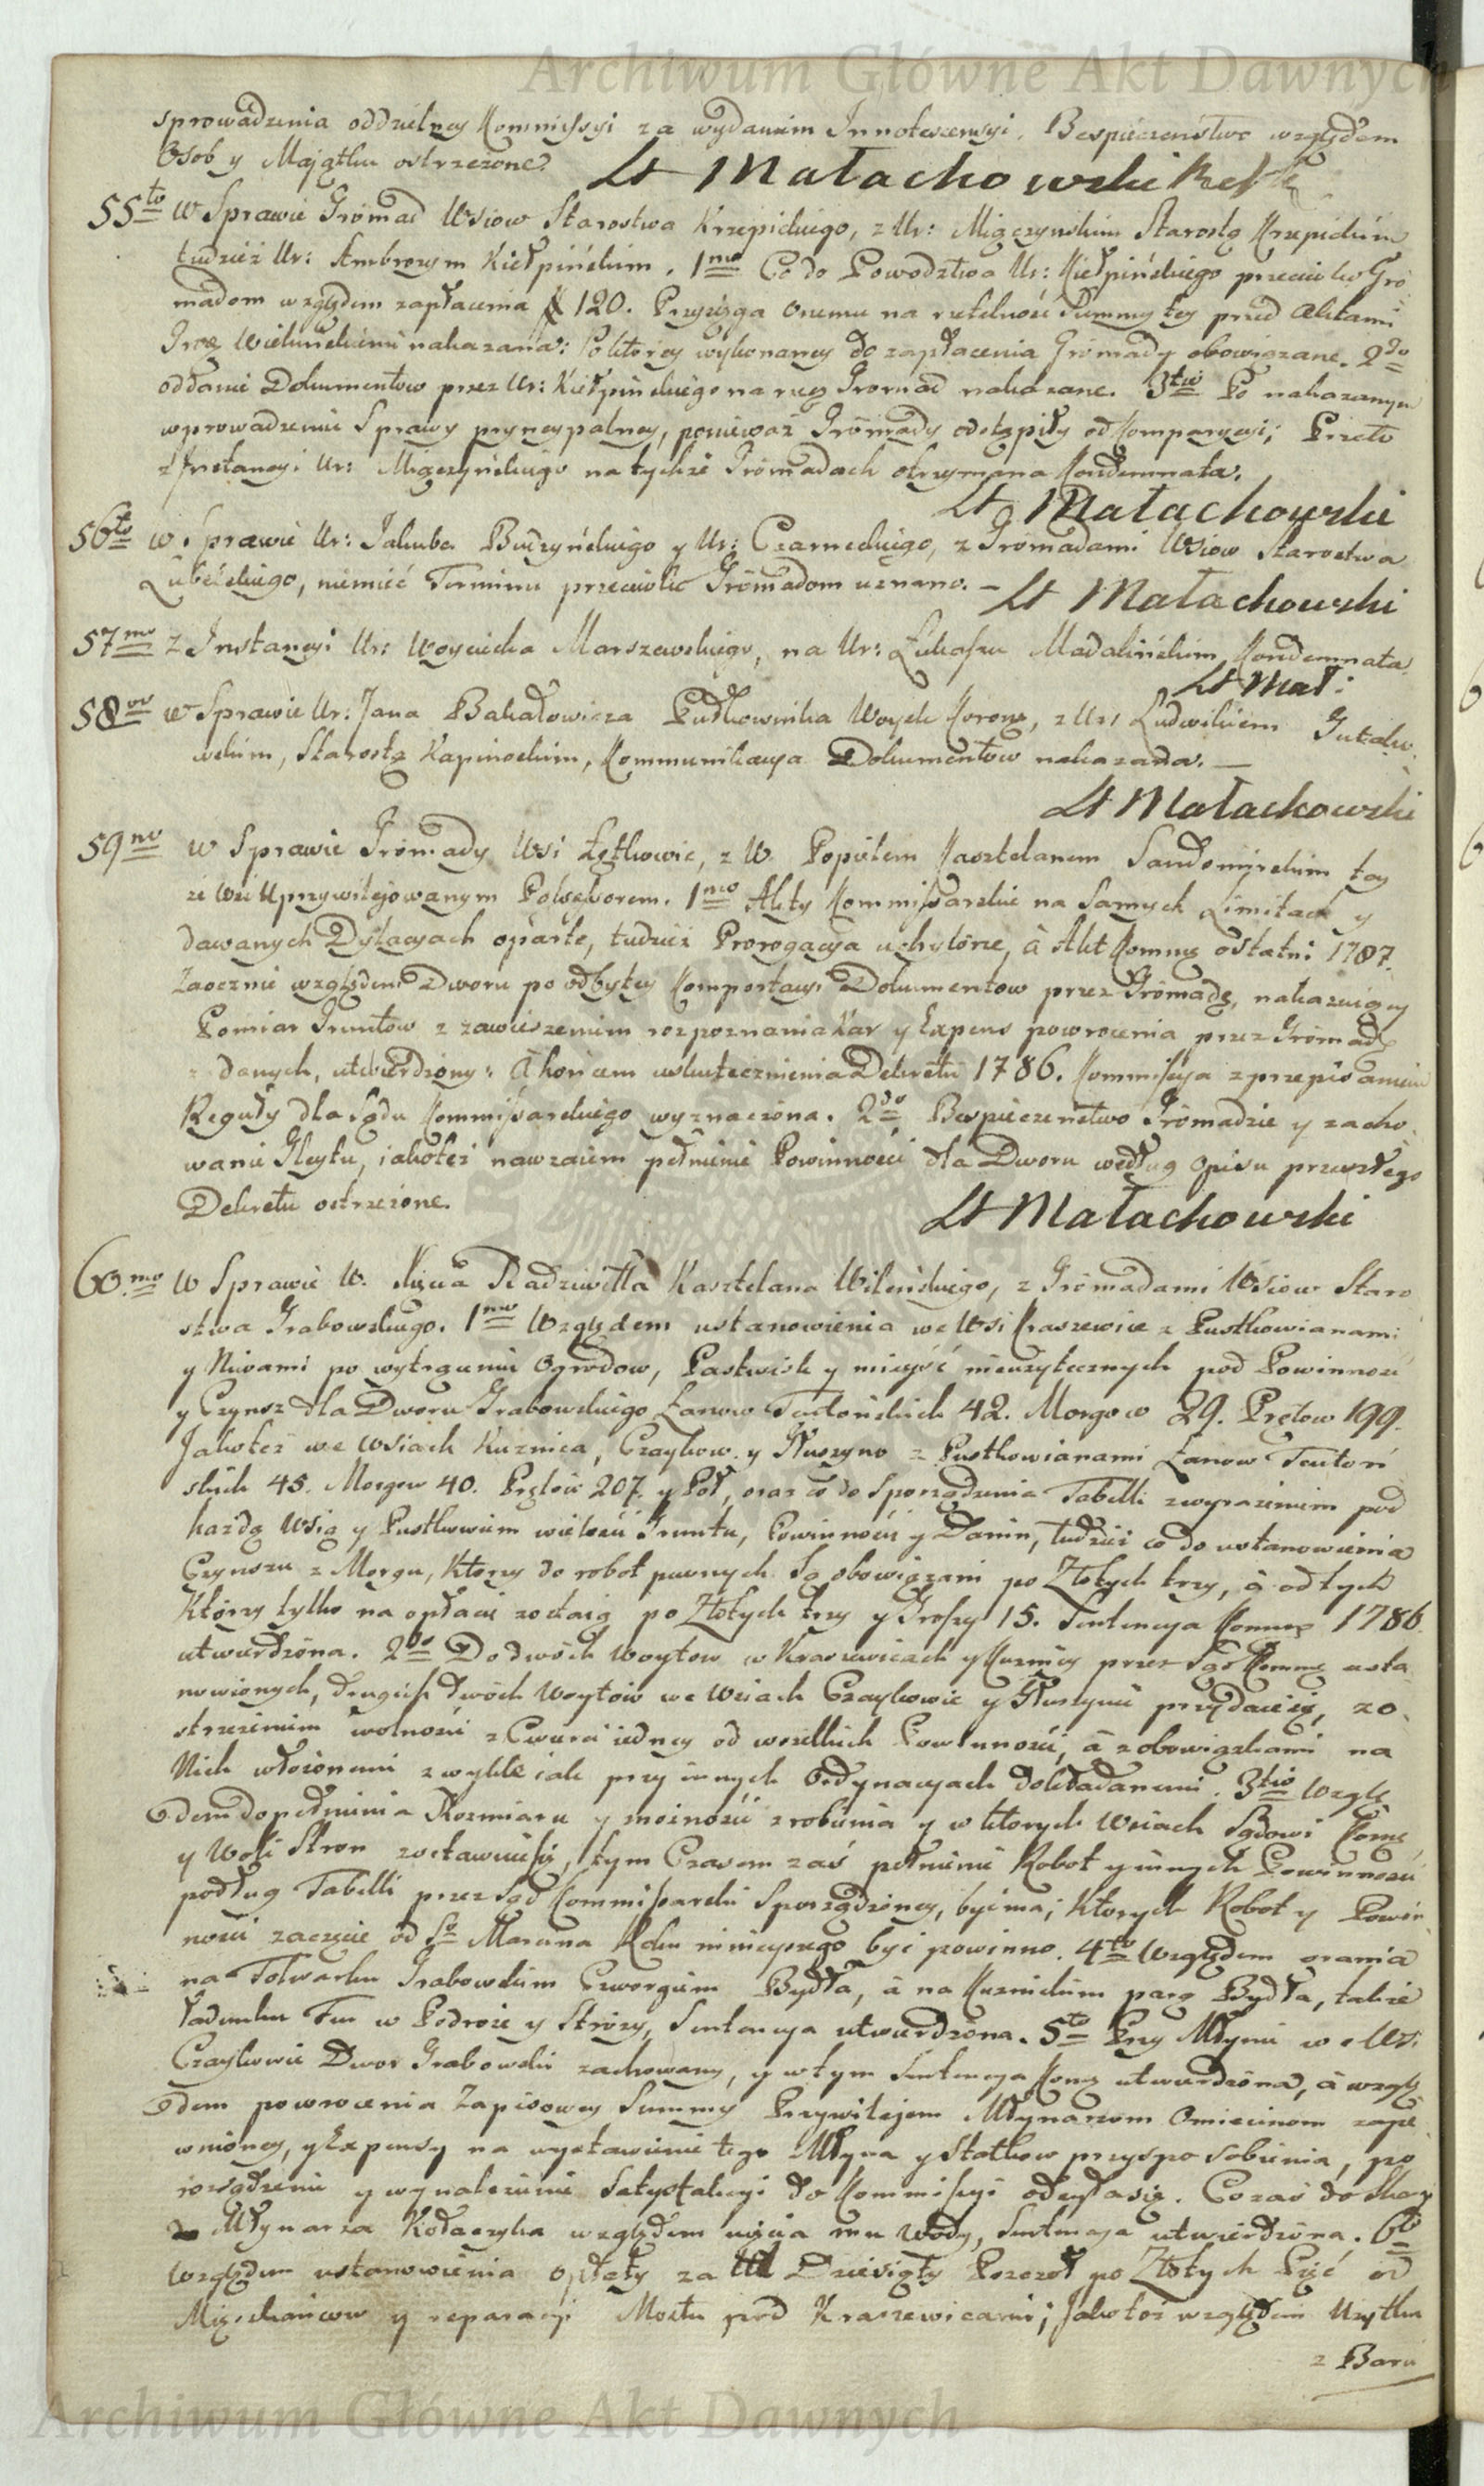 Archiwum Główne Akt Dawnych
sprowadzenia oddzielney Kommissyi za wydaniem Innotescencyi. Bespieczeństwo względem
Osob y Maiątku ostrzezone.
Lt Małachowski
55to W Sprawie Gromad Wsiow Starostwa Krzepickiego, z Ur: Mięczynskim Starostą Krzepickim
tudzież Ur: Ambrozym Kiełpińskim. 1mo Co do Powodztwa Ur: Kiełpińskiego przeciwko Gro
madom względem zapłacenia # 120. Przysięga onemu na rzetelność Summy tey przed Aktami
Grod. Wieluńskiemi nakazana: Po ktorey wykonaney do zapłacenia Gromady obowiązane. 2do
oddanie Dokumentow przez Ur: Kiełpińskiego na rzecz Gromad nakazane. 3tio Po nakazanym
wprowadzeniu Sprawy pryncypalney, ponieważ Gromady odstąpiły od Komparycyi; Przeto
z Instancyi Ur: Mięczyńskiego na tychże Gromadach otrzymana Kondemnata.
Lt Małachowski
56to w Sprawie Ur: Jakuba Budzyńskiego y Ur: Czarneckiego, z Gromadami Wsiow Starostwa
Lubelskiego, niemieć Terminu przeciwko Gromadom uznano. –
Lt Małachowski
57mo z Instancyi Ur: Woyciecha Marszewskiego, na Ur: Łukaszu Madalińskim Kondemnata.
Lt Mał:
58vo w Sprawie Ur: Jana Bakałowicza Pułkownika Woysk Koron, z Ur: Ludwikiem Gutakow
skim, Starostą Kapinoskim, Kommunikacya Dokumentow nakazana. —
Lt Małachowski
59no w Sprawie Gromady Wsi Łętkowic, z W. Popielem Kasztelanem Sandomirskim tey
że Wsi Uprzywilejowanym Possessorem. 1mo Akty Kommissarskie na Samych Limitach y
dawanych Dylacyach oparte, tudzież Prorogacya uchylone, à Akt Kommny ostatni 1787.
Zaocznie względem Dworu po odbytey Komportacyi Dokumentow przez Gromadę, nakazuiący
Pomiar Gruntow z zawieszeniem rozpoznania Kar y Expens powrocenia przez Gromadę
danych, utwierdzony: à końcem uskutecznienia Dekretu 1786. Kommissya z przepisaniem
Reguły dla Sądu Kommissarskiego wyznaczona. 2do Bespieczeństwo Gromadzie y zacho
wanie Gleytu, iakoteż nawzaiem pełnienie Powinności dla Dworu według Opisu przeszłego
Dekretu ostrzeżone.
Lt Małachowski
60mo W Sprawie W. Xięcia Radziwiłła Kasztelana Wileńskiego, z Gromadami Wsiow Staro
stwa Grabowskiego. 1mo Względem ustanowienia we Wsi Kraszewice z Pustkowianami
y Niwami po wytrąceniu Ogrodow, Pastwisk y mieysć nieużytecznych pod Powinność
y Czynsz dla Dworu Grabowskiego Łanow Teutońskich 42. Morgow 29. Prętow 199.
Jakoteż we Wsiach Kuznica, Czaykow y Głuszyno z Pustkowianami Łanow Teutoń
skich 45. Morgow 40. Prętow 207. y Poł, oraz co do Sporządzenia Tabelli z wyrażeniem pod
każdą Wsią y Pustkowiem wielości Gruntu, Powinności y Danin, tudzież co do ustanowienia
Czynszu z Morgu, Ktorzy do robot pewnych są obowiązani po Złotych trzy, à od tych
Ktorzy tylko na opłacie zostaią po Złotych trzy y Groszy 15. Sentencya Kommny 1786.
utwierdzona. 2do Do dwoch Woytow w Kraszewicach y Kuznicy przez Sąd Kommny usta
nowionych, drugich dwóch Woytow we Wsiach Czaykowie y Głuszynie przydaiesię, z o
strzezeniem wolności z Cwierci iedney od wszelkich Powinności, à z obowiązkami na
Nich włożonemi zwykle iak przy innych Ordynacyach dokładanemi. 3tio Wzglę
dem dopełnienia Rozmiaru y możności zrobienia y w ktorych Wsiach Sądowi Komny
y Woli Stron zostawuiesię, tym Czasem zaś pełnienie Robot y innych Powinności
podług Tabelli przez Sąd Kommissarski Sporządzoney, być ma; Ktorych Robot y Powin
ności zaczęcie od So Marcina Roku ninieyszego być powinno. 4to Względem orania
na Folwarku Grabowskim Czworgiem Bydła, à na Kuznickim parą Bydła, także
ładunku Fur w Podroże y Stroży, Sentencya utwierdzona. 5to Przy Młynie we Wsi
Czaykowie Dwor Grabowski zachowany, y w tym Sentencya Komny utwierdzona, à wzglę
dem powrocenia Zapisowey Summy Przywilejem Młynarzom Omiecinom zape
wnioney, y Expensy na wystawienie tego Młyna y Statkow przysposobienia, po
rozsądzenie y wynalezienie Satysfakcyi do Kommissyi odsyłasię. Co zaś do Skargi
Młynarza Kołaczyka względem uięcia mu Wody, Sentencya utwierdzona. 6to
Względem ustanowienia opłaty za Dziesiąty Pszczoł po Złotych Pięć od
Mieszkańcow y reparacyi Mostu pod Kraszewicami; Jakoteż względem Użytku
z Boru
Archiwum Główne Akt Dawnych